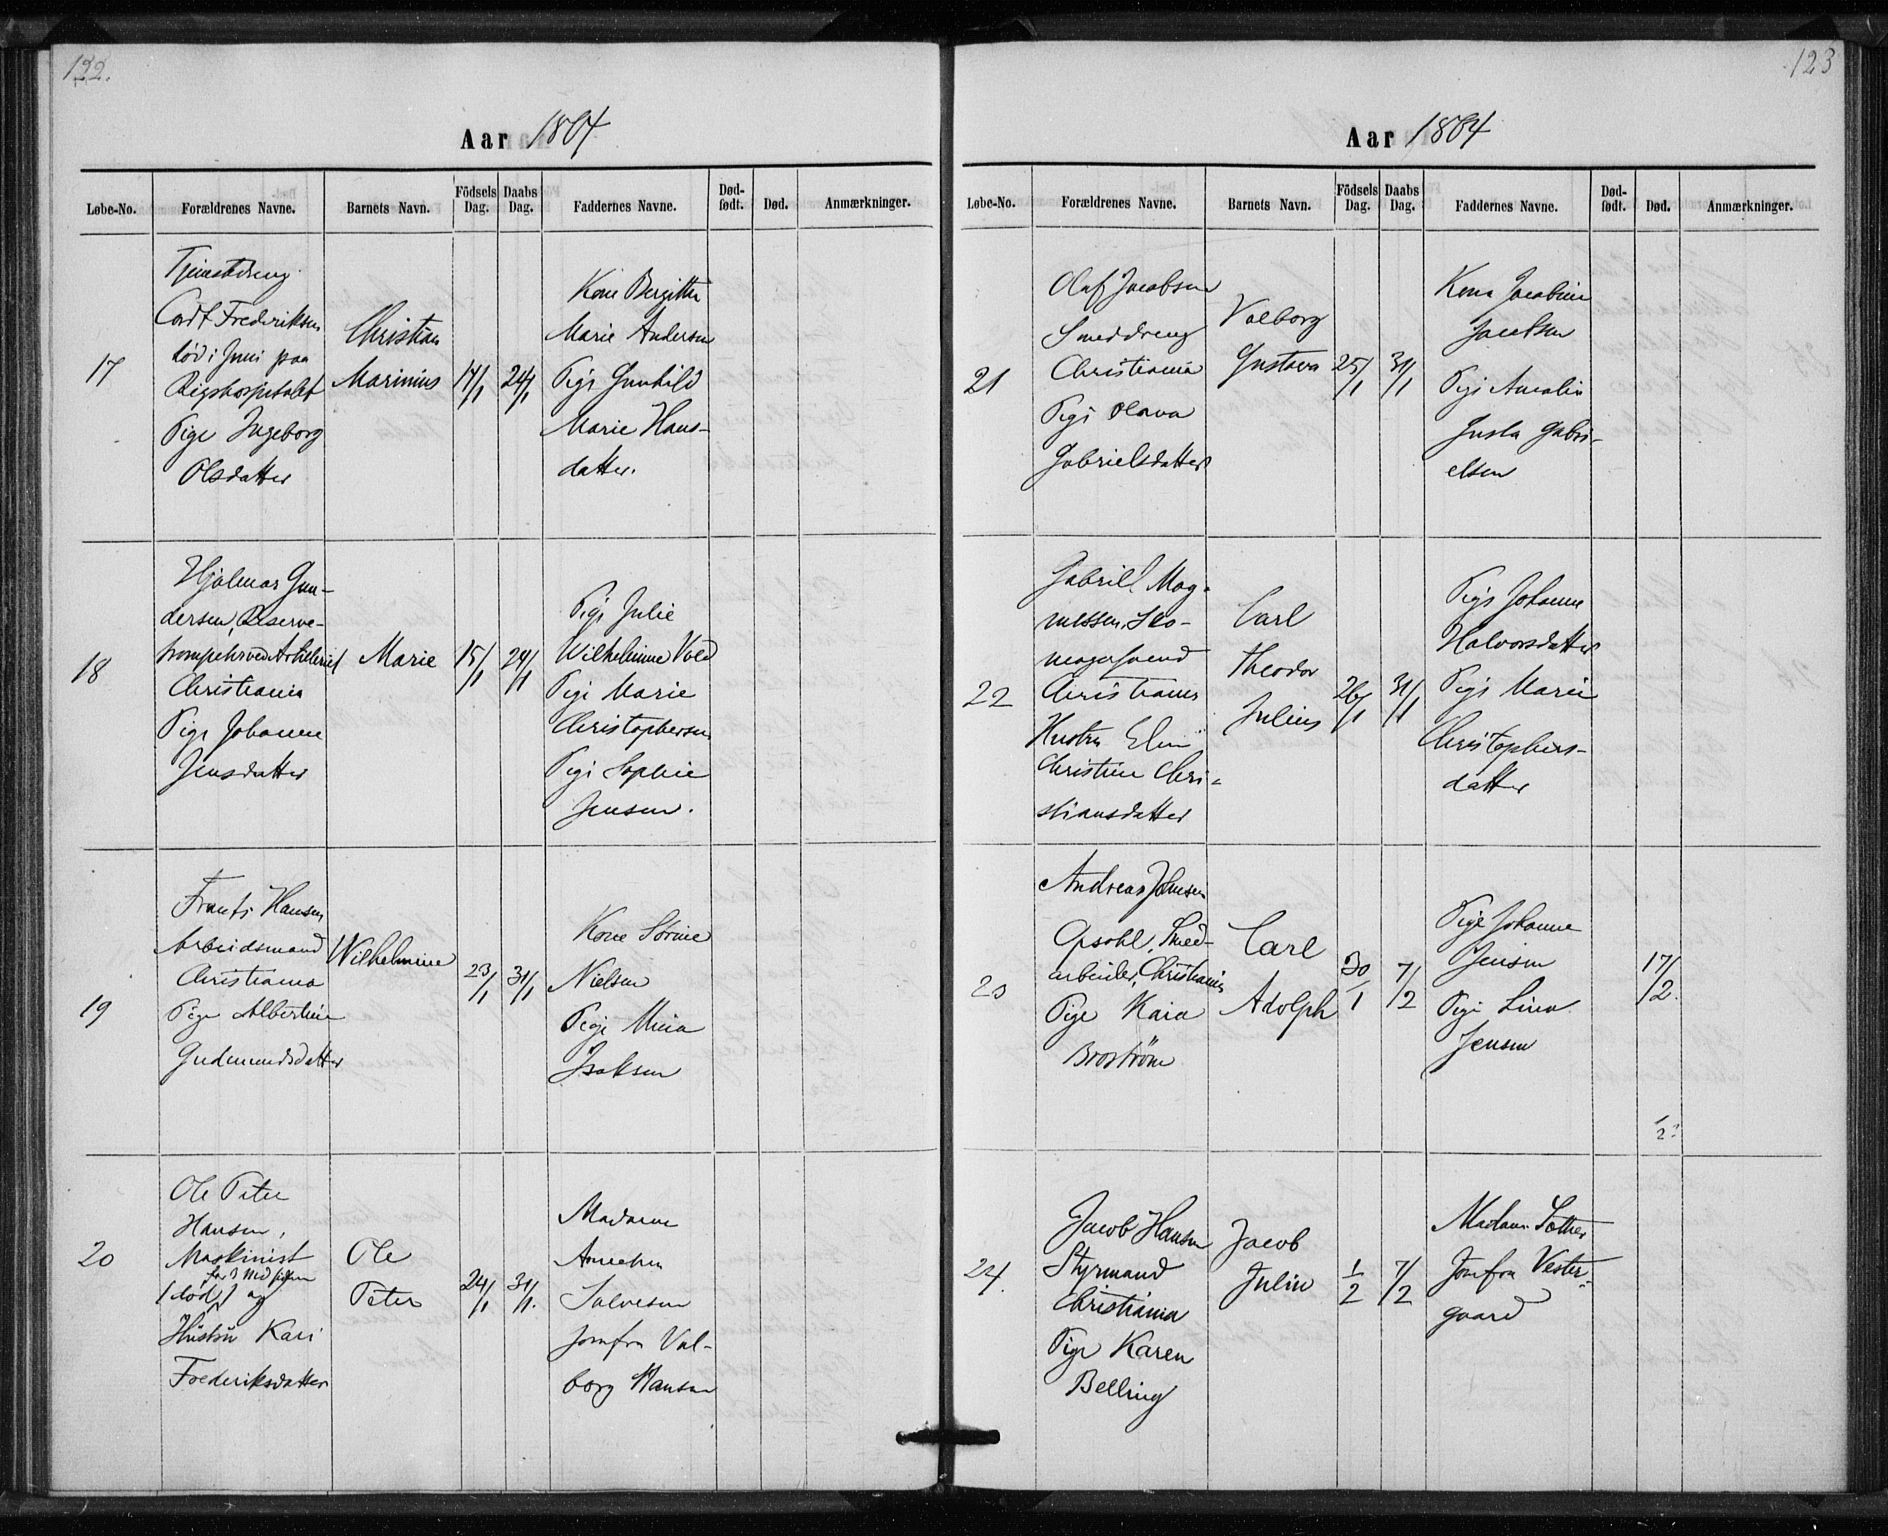 122.
Aar 1864
Løbe-No. Forældrenes Navne. Barnets Navn. Födsels Dag. Daabs Dag. Faddernes Navne. Død-født. Død. Anmærkninger.
17
Tjenestdreng
Carl Frederiksen
död i Juni paa
Rigshospitalet
Pige Ingeborg
Olsdatter
Christian
Marinius
17/1
24/1
Kone Bergitta
Marie Andersen
Pige Gunhild
Marie Hans-
datter.
18
Hjalmar Gun-
dersen, Reserve-
trompeter ved Artilleriet
Christiania
Pige Johanne
Jensdatter
Marie
15/1
24/1
Pige Julie
Wilhelmine Vold
Pige Marie
Christophersen
Pige Sophie
Jensen.
19
Frants Hansen
Arbeidsmand
Christiania
Pige Albertine
Gudmundsdatter
Wilhelmine
23/1
31/1
Kone Sörine
Nielsen
Pige Mina
Isaksen
20
Ole Peter
Hansen,
Maskinist
for 3 Mdr siden
(död) og
Hustru Kari
Frederiksdatter
Ole
Peter
24/1
31/1.
Madame
Annechen
Salvesen
Jomfru Val-
borg Hansen
123
Aar 1864
Løbe-No. Forældrenes Navne. Barnets Navn. Födsels Dag. Daabs Dag. Faddernes Navne. Død-født. Død. Anmærkninger.
21
Olaf Jacobsen
Smeddreng
Christiania
Pige Olava
Gabrielsdatter
Valborg
Gustava
25/1
31/1
Kone Jacobine
Jacobsen
Pige Amalie
Gusta Gabri-
elsen
22
Gabriel Mag-
nussen, Sko-
magersvend
Christiania
Hustru Elen
Christine Chri-
stiansdatter
Carl
Theodor
Julius
26/1
31/1
Pige Johanne
Halvorsdatter
Pige Marie
Christophers-
datter
23
Andreas Johnsen
Opsahl, Smed-
arbeider, Christiania
Pige Kaia
Broström
Carl
Adolph
30/1
7/2
Pige Johanne
Jensen
Pige Lina
Jensen
17/2.
1/2?
24.
Jacob Hansen
Styrmand
Christiania
Pige Karen
Belling
Jacob
Julin
1/2
7/2
Madam Sother
Jomfru Vester-
gaard